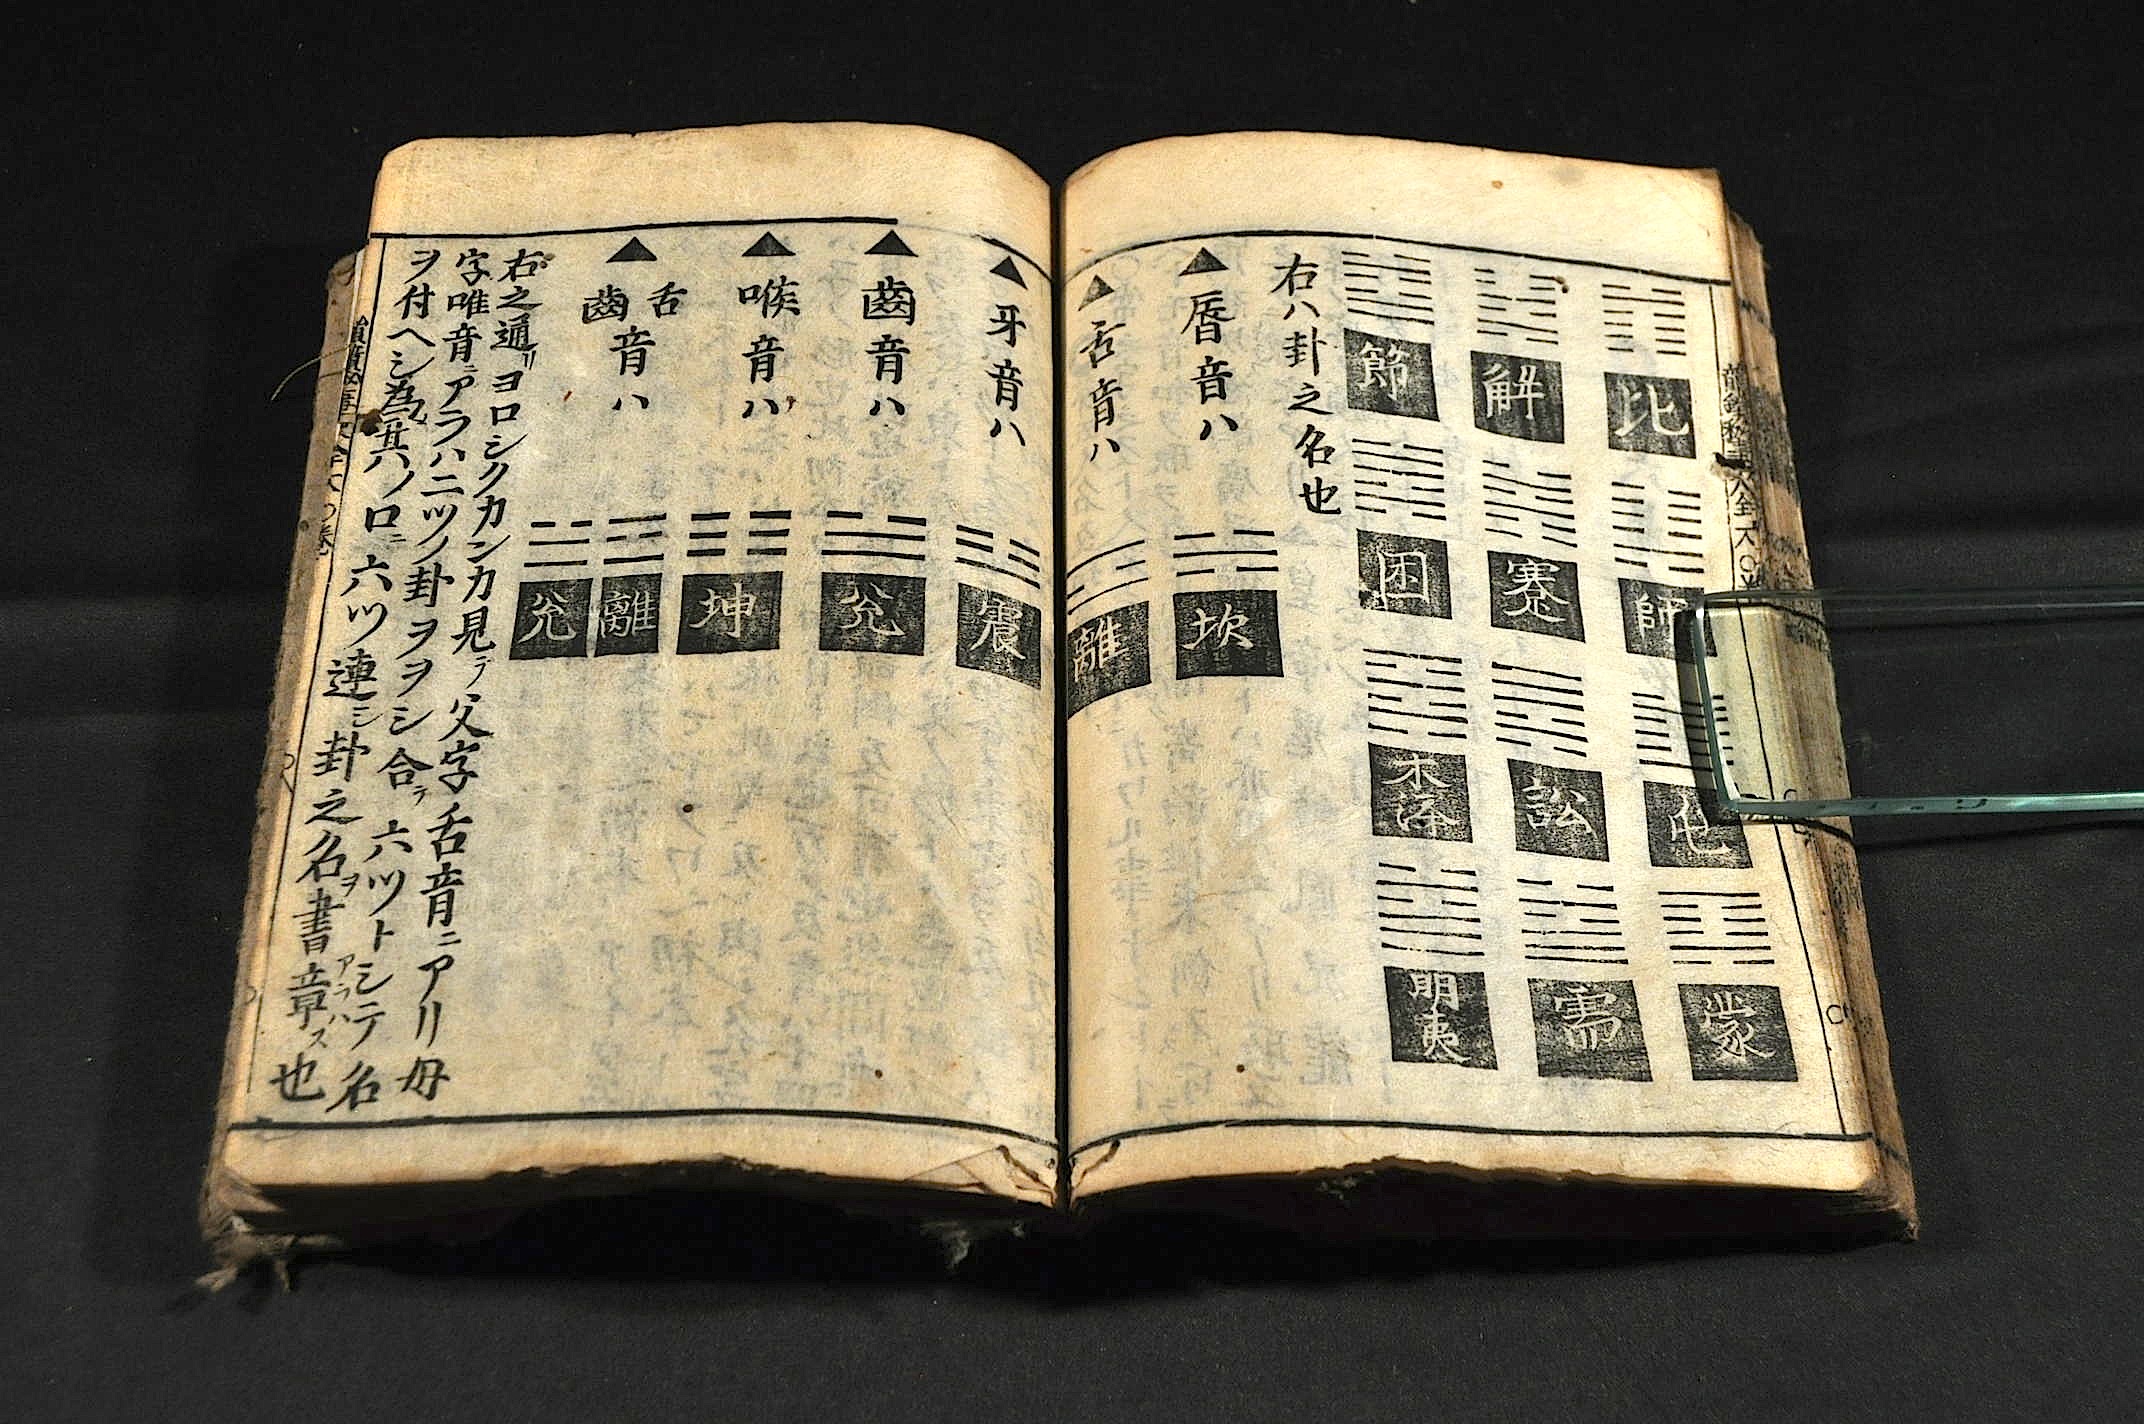 比
師
屯
蒙
解
蹇
訟
需
節
困
明夷
右八卦之名也
▲唇音ハ 坎
▲舌音ハ 離
▲牙音ハ 震
▲齒音ハ 兌
▲喉音ハ 坤
▲舌齒音ハ 離兌
右之通リヨロシクカンカ見テ父字舌音ニアリ母
字唯音ニアラハ二ツノ卦ヲヲシ合テ六ツトシテ名
ヲ付ヘシ為其八ノ口ニ六ツ連シ卦之名ヲ書章アラハス也